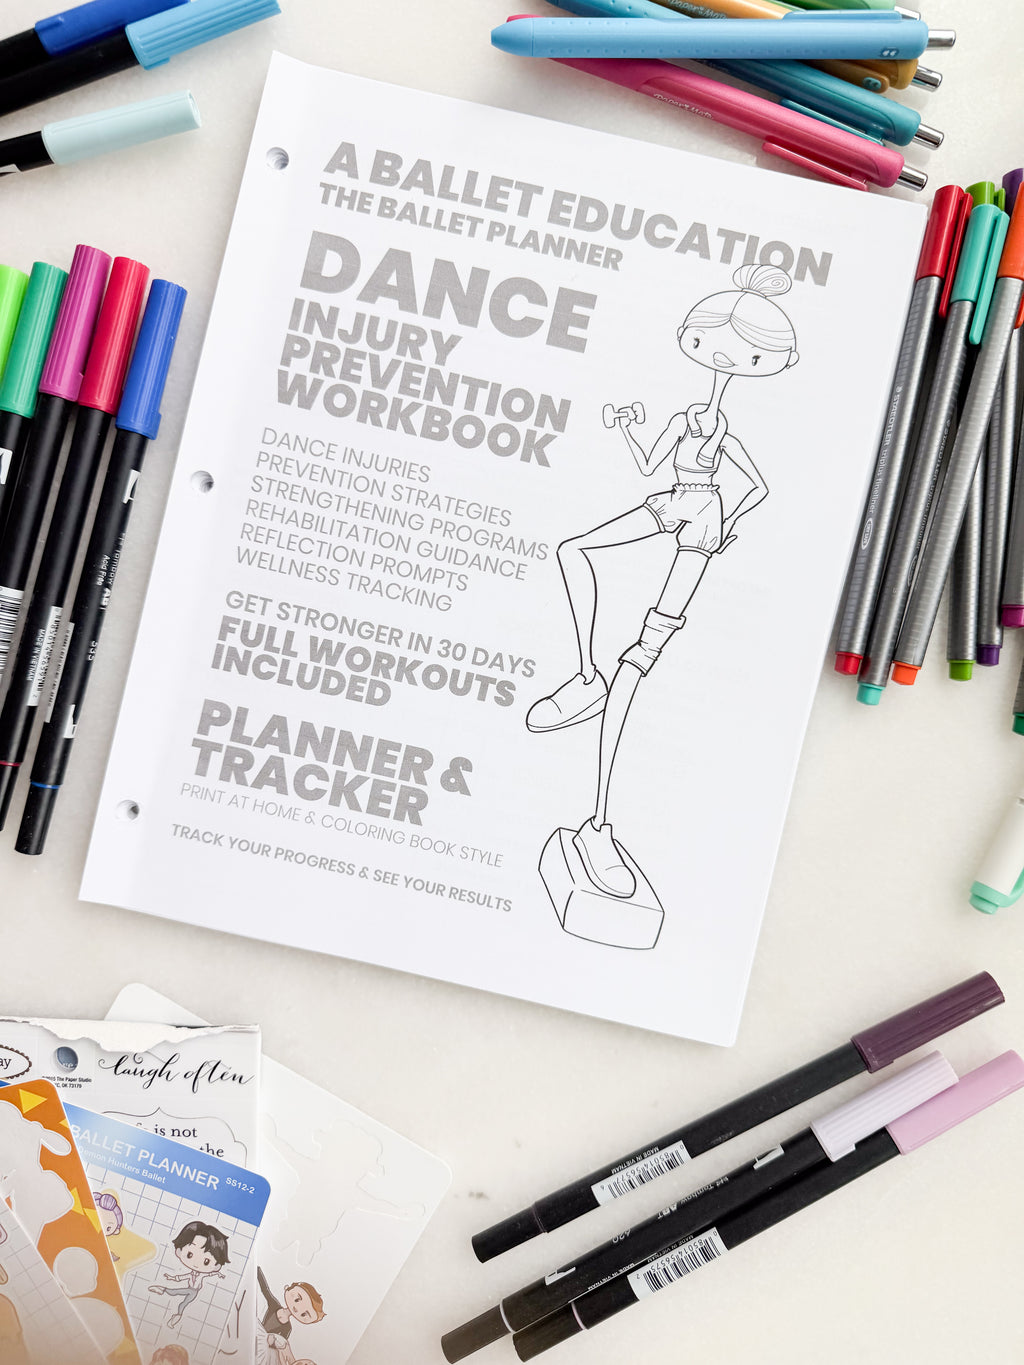 A BALLET EDUCATION
THE BALLET PLANNER
DANCE
INJURY
PREVENTION
WORKBOOK
DANCE INJURIES
PREVENTION STRATEGIES
STRENGTHENING PROGRAMS
REHABILITATION GUIDANCE
REFLECTION PROMPTS
WELLNESS TRACKING
GET STRONGER IN 30 DAYS
FULL WORKOUTS
INCLUDED
PLANNER &
TRACKER
PRINT AT HOME & COLORING BOOK STYLE
TRACK YOUR PROGRESS & SEE YOUR RESULTS
laugh often
is not
the
BALLET PLANNER SS12-2
Demon Hunters Ballet
STAEDTLER triplus fineliner
MADE IN VIETNAM
MADE IN VIETNAM
620
535